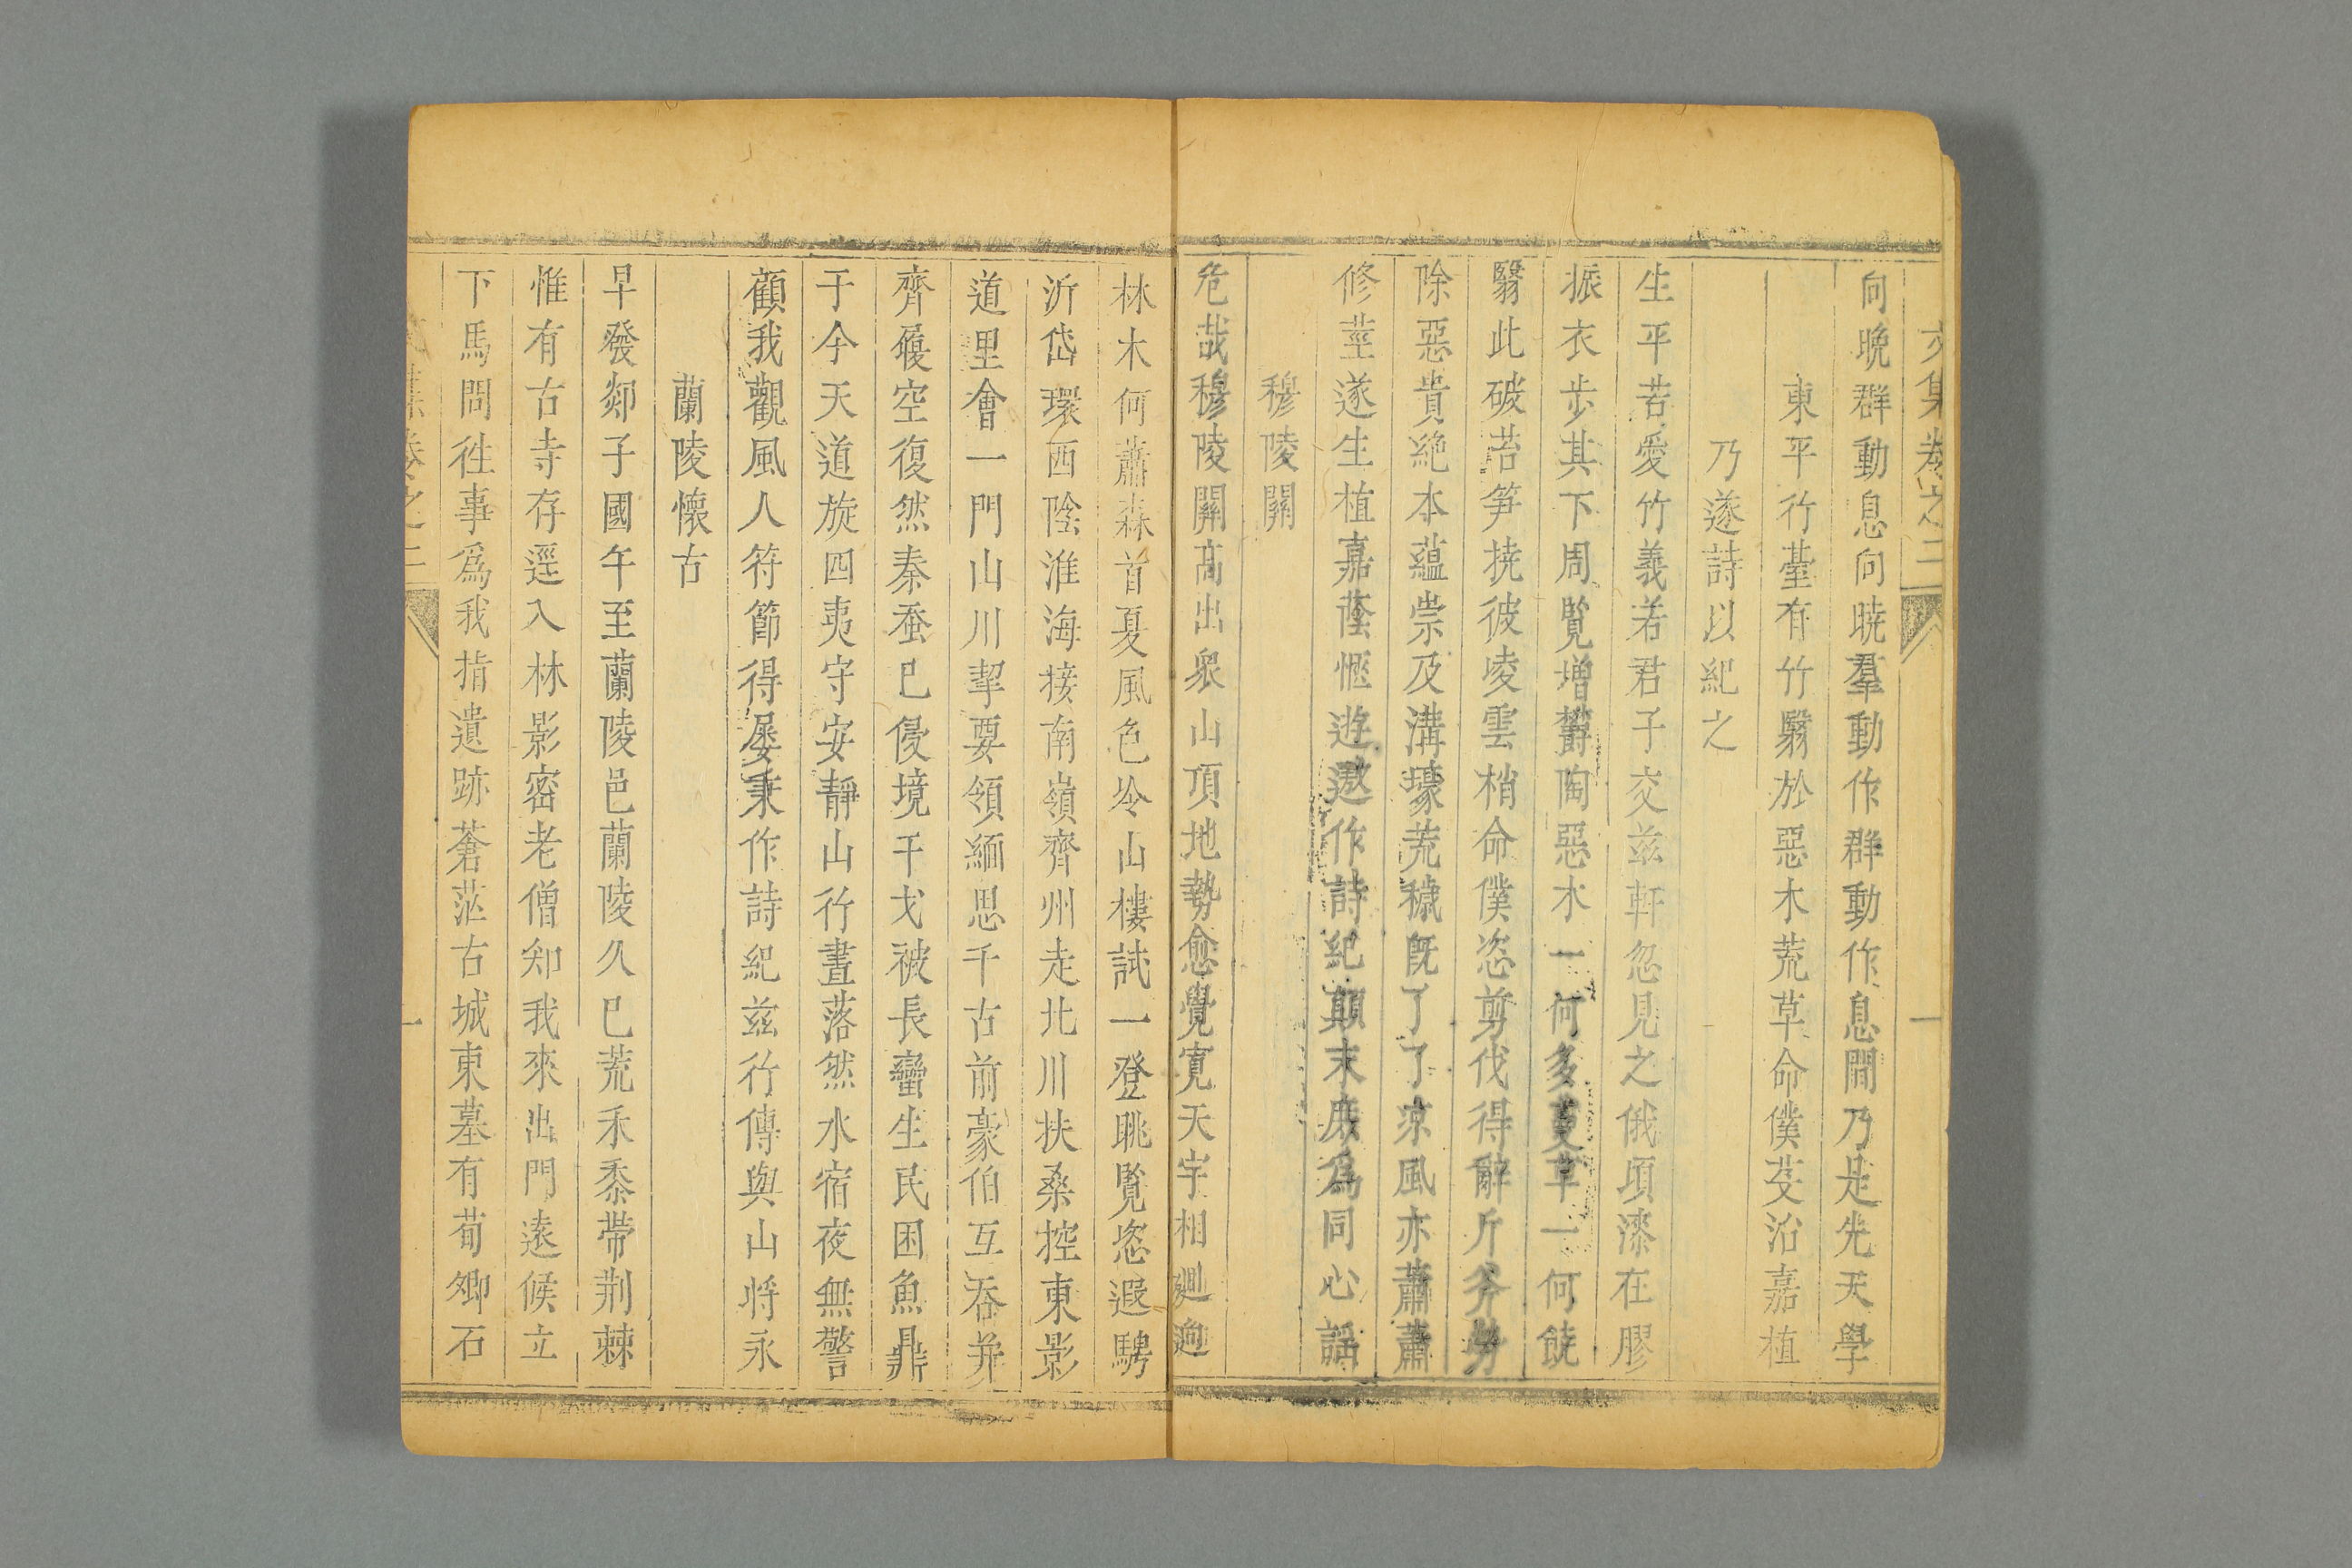 文集卷之二
一
向晚群動息向曉羣動作群動作息間乃是先天學
東平行臺有竹翳於惡木荒草命僕芟治嘉植
乃遂詩以紀之
生平苦愛竹義若君子交兹軒忽見之俄頃漆在膠
振衣步其下周覧增欝陶惡木一何多蔓草一何饒
翳此破苔笋撓彼崚雲梢命僕恣剪伐得辭斤斧勞
除惡貴絶本蘊崇及溝壕荒穢旣了了凉風亦蕭蕭
修莖遂生植嘉蔭愜遊遨作詩紀顛末庶爲同心謡
穆陵關
危哉穆陵關髙出衆山頂地勢愈覺寛天宇相𢌞逈
林木何蕭森首夏風色冷山樓試一登眺覧恣遐騁
沂岱環西陰淮海接南嶺齊州走北川扶桑控東影
道里會一門山川挈要領緬思千古前豪伯互吞并
齊履空復然秦蚕已侵境干戈被長蠻生民困魚鼎
于今天道旋四夷守安靜山行晝落然水宿夜無警
顧我觀風人符節得屡秉作詩紀兹行傳與山將永
蘭陵懷古
早發郯子國午至蘭陵邑蘭陵久已荒禾黍帶荆棘
惟有古寺存逕入林影密老僧知我來出門遠候立
下馬問徃事爲我指遺跡蒼茫古城東墓有荀卿石
卷之二
一